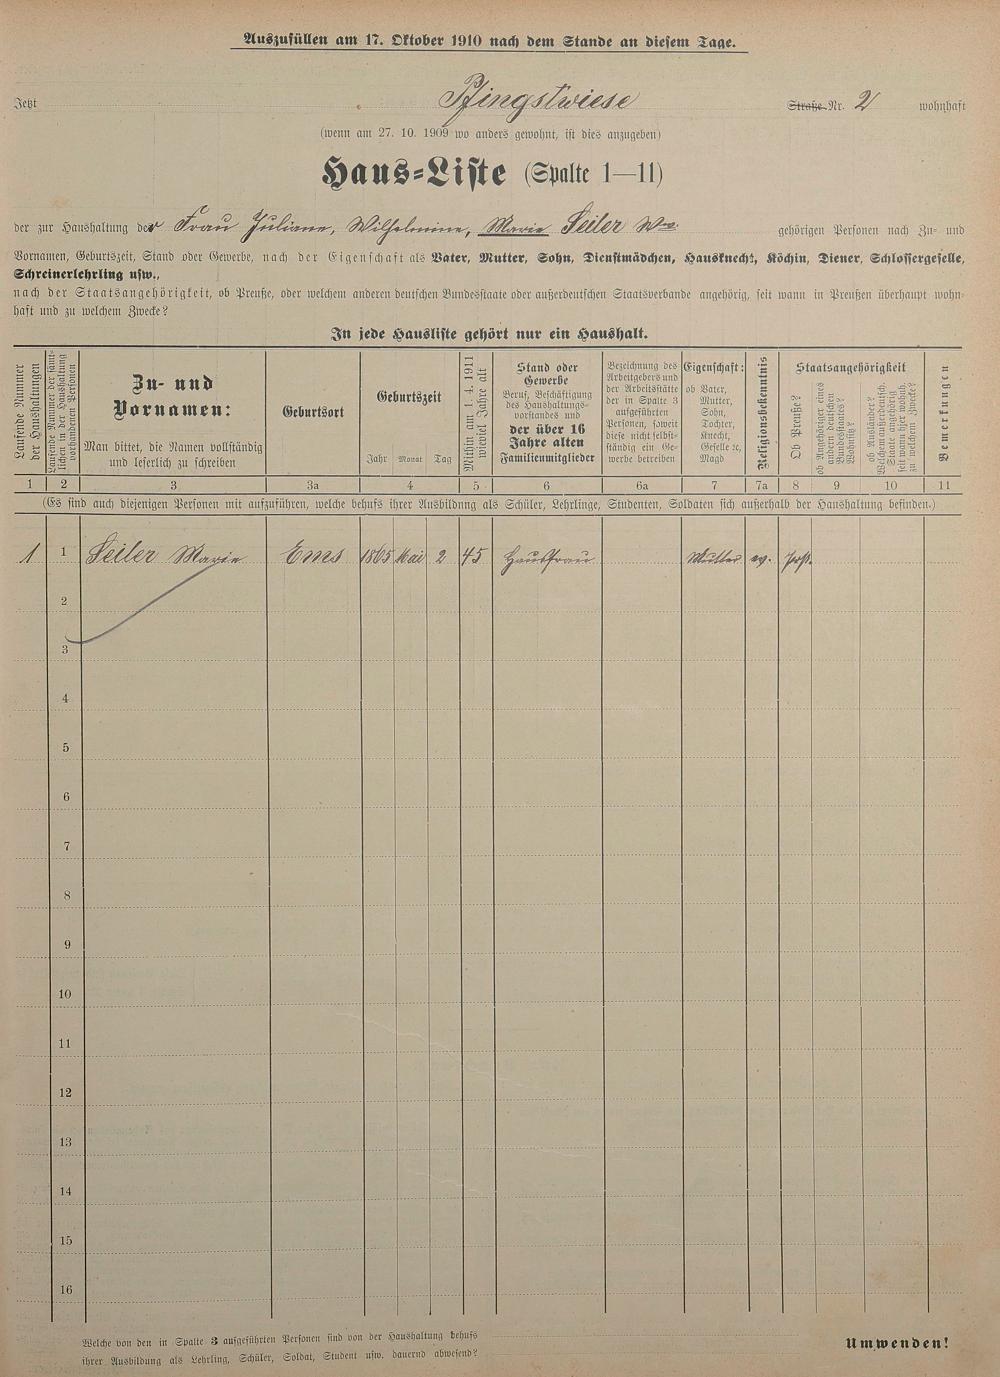 Auszufüllen am 17. Oktober 1910 nach dem Stande an diesem Tage.
Jetzt Pfingstwiese Straße Nr. 2 wohnhaft
(wenn am 27. 10. 1909 wo anders gewohnt, ist dies anzugeben)
Haus-Liste (Spalte 1—11)
der zur Haushaltung der Frau Juliane, Wilhelmine, Marie Seiler Wwe. gehörigen Personen nach Zu- und
Vornamen, Geburtszeit, Stand oder Gewerbe, nach der Eigenschaft als Vater, Mutter, Sohn, Dienstmädchen, Hausknecht, Köchin, Diener, Schlossergeselle,
Schreinerlehrling usw.,
nach der Staatsangehörigkeit, ob Preuße, oder welchem anderen deutschen Bundesstaate oder außerdeutschen Staatsverbande angehörig, seit wann in Preußen überhaupt wohn-
haft und zu welchem Zwecke?
In jede Hausliste gehört nur ein Haushalt.
Laufende Nummer
der Haushaltungen
Laufende Nummer der sämt-
lichen in der Haushaltung
vorhandenen Personen
Zu- und
Vornamen:
Man bittet, die Namen vollständig
und leserlich zu schreiben
Geburtsort
Geburtszeit
Jahr Monat Tag
Mithin am 1. 4. 1911
wieviel Jahre alt
Stand oder
Gewerbe
Beruf, Beschäftigung
des Haushaltungs-
vorstandes und
der über 16
Jahre alten
Familienmitglieder
Bezeichnung des
Arbeitgebers und
der Arbeitsstätte
der in Spalte 3
aufgeführten
Personen, soweit
diese nicht selbst-
ständig ein Ge-
werbe betreiben
Eigenschaft:
ob Vater,
Mutter,
Sohn,
Tochter,
Knecht,
Geselle ec,
Magd
Religionsbekenntnis
Staatsangehörigkeit
Ob Preuße?
ob Angehöriger eines
andern deutschen
Bundesstaates?
Wohnsitz?
ob Ausländer?
Welchem außerdeutsch.
Staate angehörig
seit wann hier wohnh.
zu welchem Zwecke?
Bemerkungen
1 2 3 3a 4 5 6 6a 7 7a 8 9 10 11
(Es sind auch diejenigen Personen mit aufzuführen, welche behufs ihrer Ausbildung als Schüler, Lehrlinge, Studenten, Soldaten sich außerhalb der Haushaltung befinden.)
1 1 Seiler Marie Ems 1865 Mai 2 45 Hausfrau Mutter ev. Prß.
2
3
4
5
6
7
8
9
10
11
12
13
14
15
16
Welche von den in Spalte 3 aufgeführten Personen sind von der Haushaltung behufs
ihrer Ausbildung als Lehrling, Schüler, Soldat, Student usw. dauernd abwesend?
Umwenden!